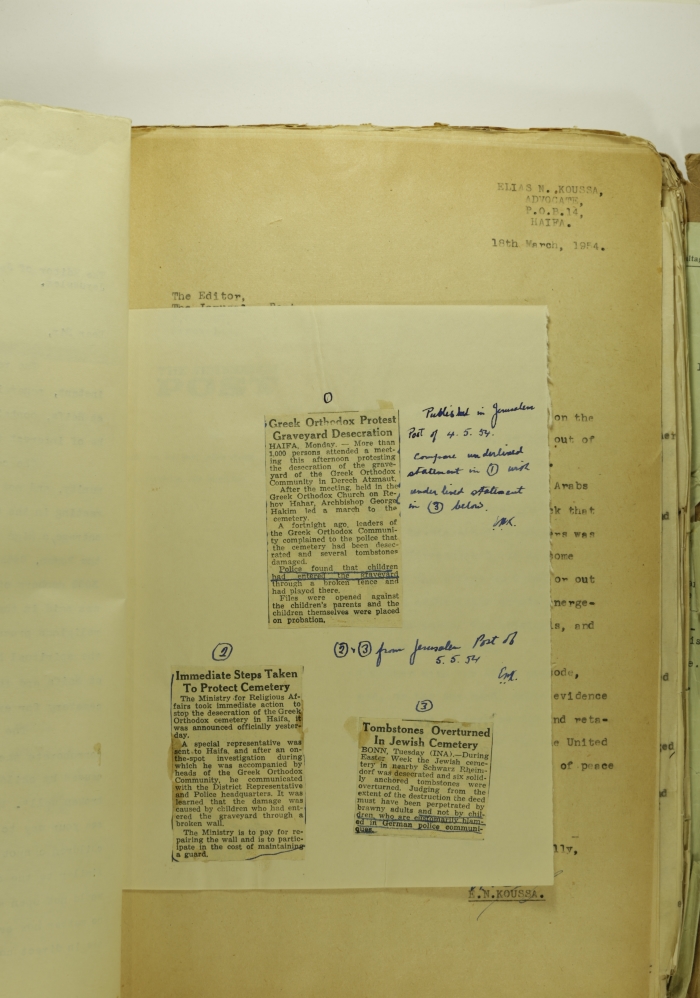 ELIAS N. KOUSSA,
ADVOCATE,
P.O.B.14,
HAIFA.
18th March, 1954.
The Editor,
on the
out of
Arabs
k that
rs was
ome
or out
nerge-
s, and
ode,
evidence
nd reta-
e United
of peace
lly,
E.N.KOUSSA.
1
Greek Orthodox Protest
Graveyard Desecration
HAIFA, Monday. — More than
1,000 persons attended a meet-
ing this afternoon protesting
the desecration of the grave-
yard of the Greek Orthodox
Community in Derech Atzmaut.
After the meeting, held in the
Greek Orthodox Church on Re-
hov Hahar, Archbishop George
Hakim led a march to the
cemetery.
A fortnight ago, leaders of
the Greek Orthodox Communi-
ty complained to the police that
the cemetery had been desec-
rated and several tombstones
damaged.
Police found that children
had entered the graveyard
through a broken fence and
had played there.
Files were opened against
the children's parents and the
children themselves were placed
on probation.
Published in Jerusalem
Post of 4.5.54.
Compare underlined
statement in 1 with
underlined statement
in 3 below.
2 + 3 from Jerusalem Post of
5.5.54
2
Immediate Steps Taken
To Protect Cemetery
The Ministry for Religious Af-
fairs took immediate action to
stop the desecration of the Greek
Orthodox cemetery in Haifa, it
was announced officially yester-
day.
A special representative was
sent to Haifa, and after an on-
the-spot investigation during
which he was accompanied by
heads of the Greek Orthodox
Community, he communicated
with the District Representative
and Police headquarters. It was
learned that the damage was
caused by children who had ent-
ered the graveyard through a
broken wall.
The Ministry is to pay for re-
pairing the wall and is to partic-
ipate in the cost of maintaining
a guard.
3
Tombstones Overturned
In Jewish Cemetery
BONN, Tuesday (INA).—During
Easter Week the Jewish ceme-
tery in nearby Schwarz Rhein-
dorf was desecrated and six solid-
ly anchored tombstones were
overturned. Judging from the
extent of the destruction the deed
must have been perpetrated by
brawny adults and not by chil-
dren, who are customarily blam-
ed in German police communi-
ques.